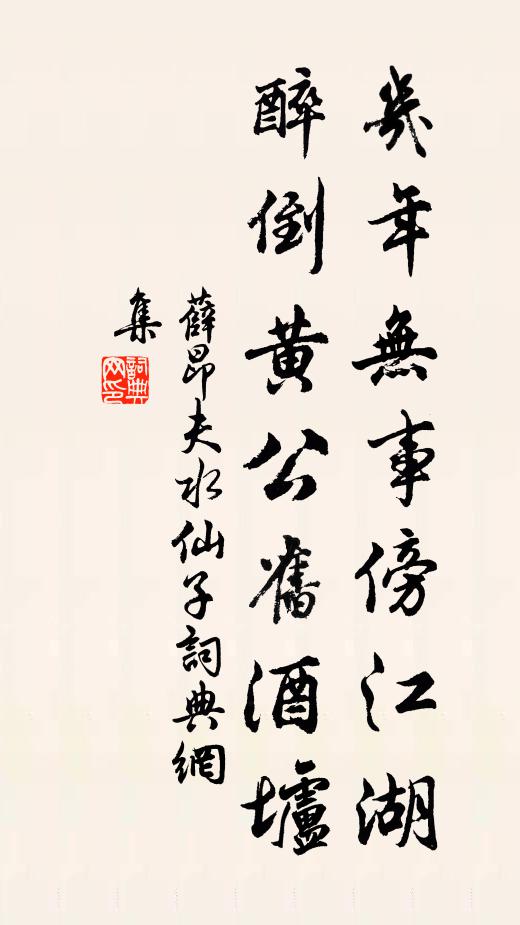 幾年無事傍江湖
醉倒黃公舊酒壚
薛昂夫水仙子詞典網
集
詞典網印